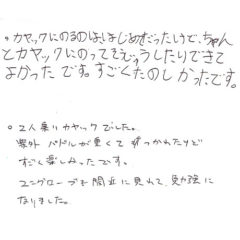 。カヤックにのるのははじめだったけど、ちゃん
とカヤックにのってそうじゅうしたりできて
よかったです。すごくたのしかったです。
○2人乗りカヤックでした。
案外パドルが重くてずっかれたけど
すごく楽しみったです。
マングローブを間近に見れて、勉強に
なりました。